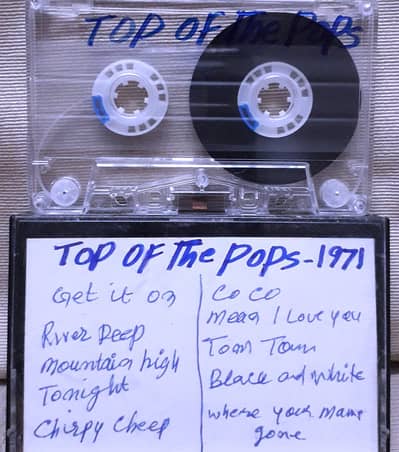 TOP OF The POPS
TOP OF The POPS-1971
Get it on
River Deep
mountain high
Tonight
Chirpy Cheep
CO CO
mean I Love you
Tom Tom
Black and white
where your mama
gone